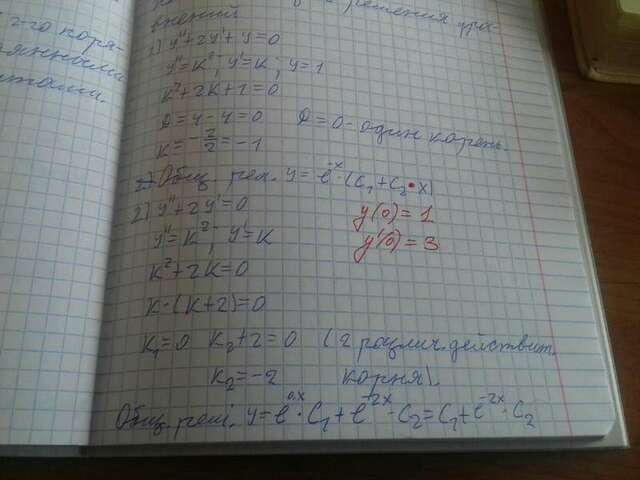 2-го поря-
решения урав-
внений
1) y"+2y'+y=0
y"=k²; y'=k; y=1
k²+2k+1=0
D=4-4=0 D=0-один корень.
k=-2/2=-1
2) Общ. реш. y=e⁻ˣ·(C₁+C₂·x)
2) y"+2y'=0 y(0)=1
y"=k²; y'=k y'(0)=3
k²+2k=0
k·(k+2)=0
k₁=0 k₂+2=0 (2 различ. действит.
k₂=-2 корня).
Общ. реш. y=e⁰ˣ·C₁+e⁻²ˣ·C₂=C₁+e⁻²ˣ·C₂